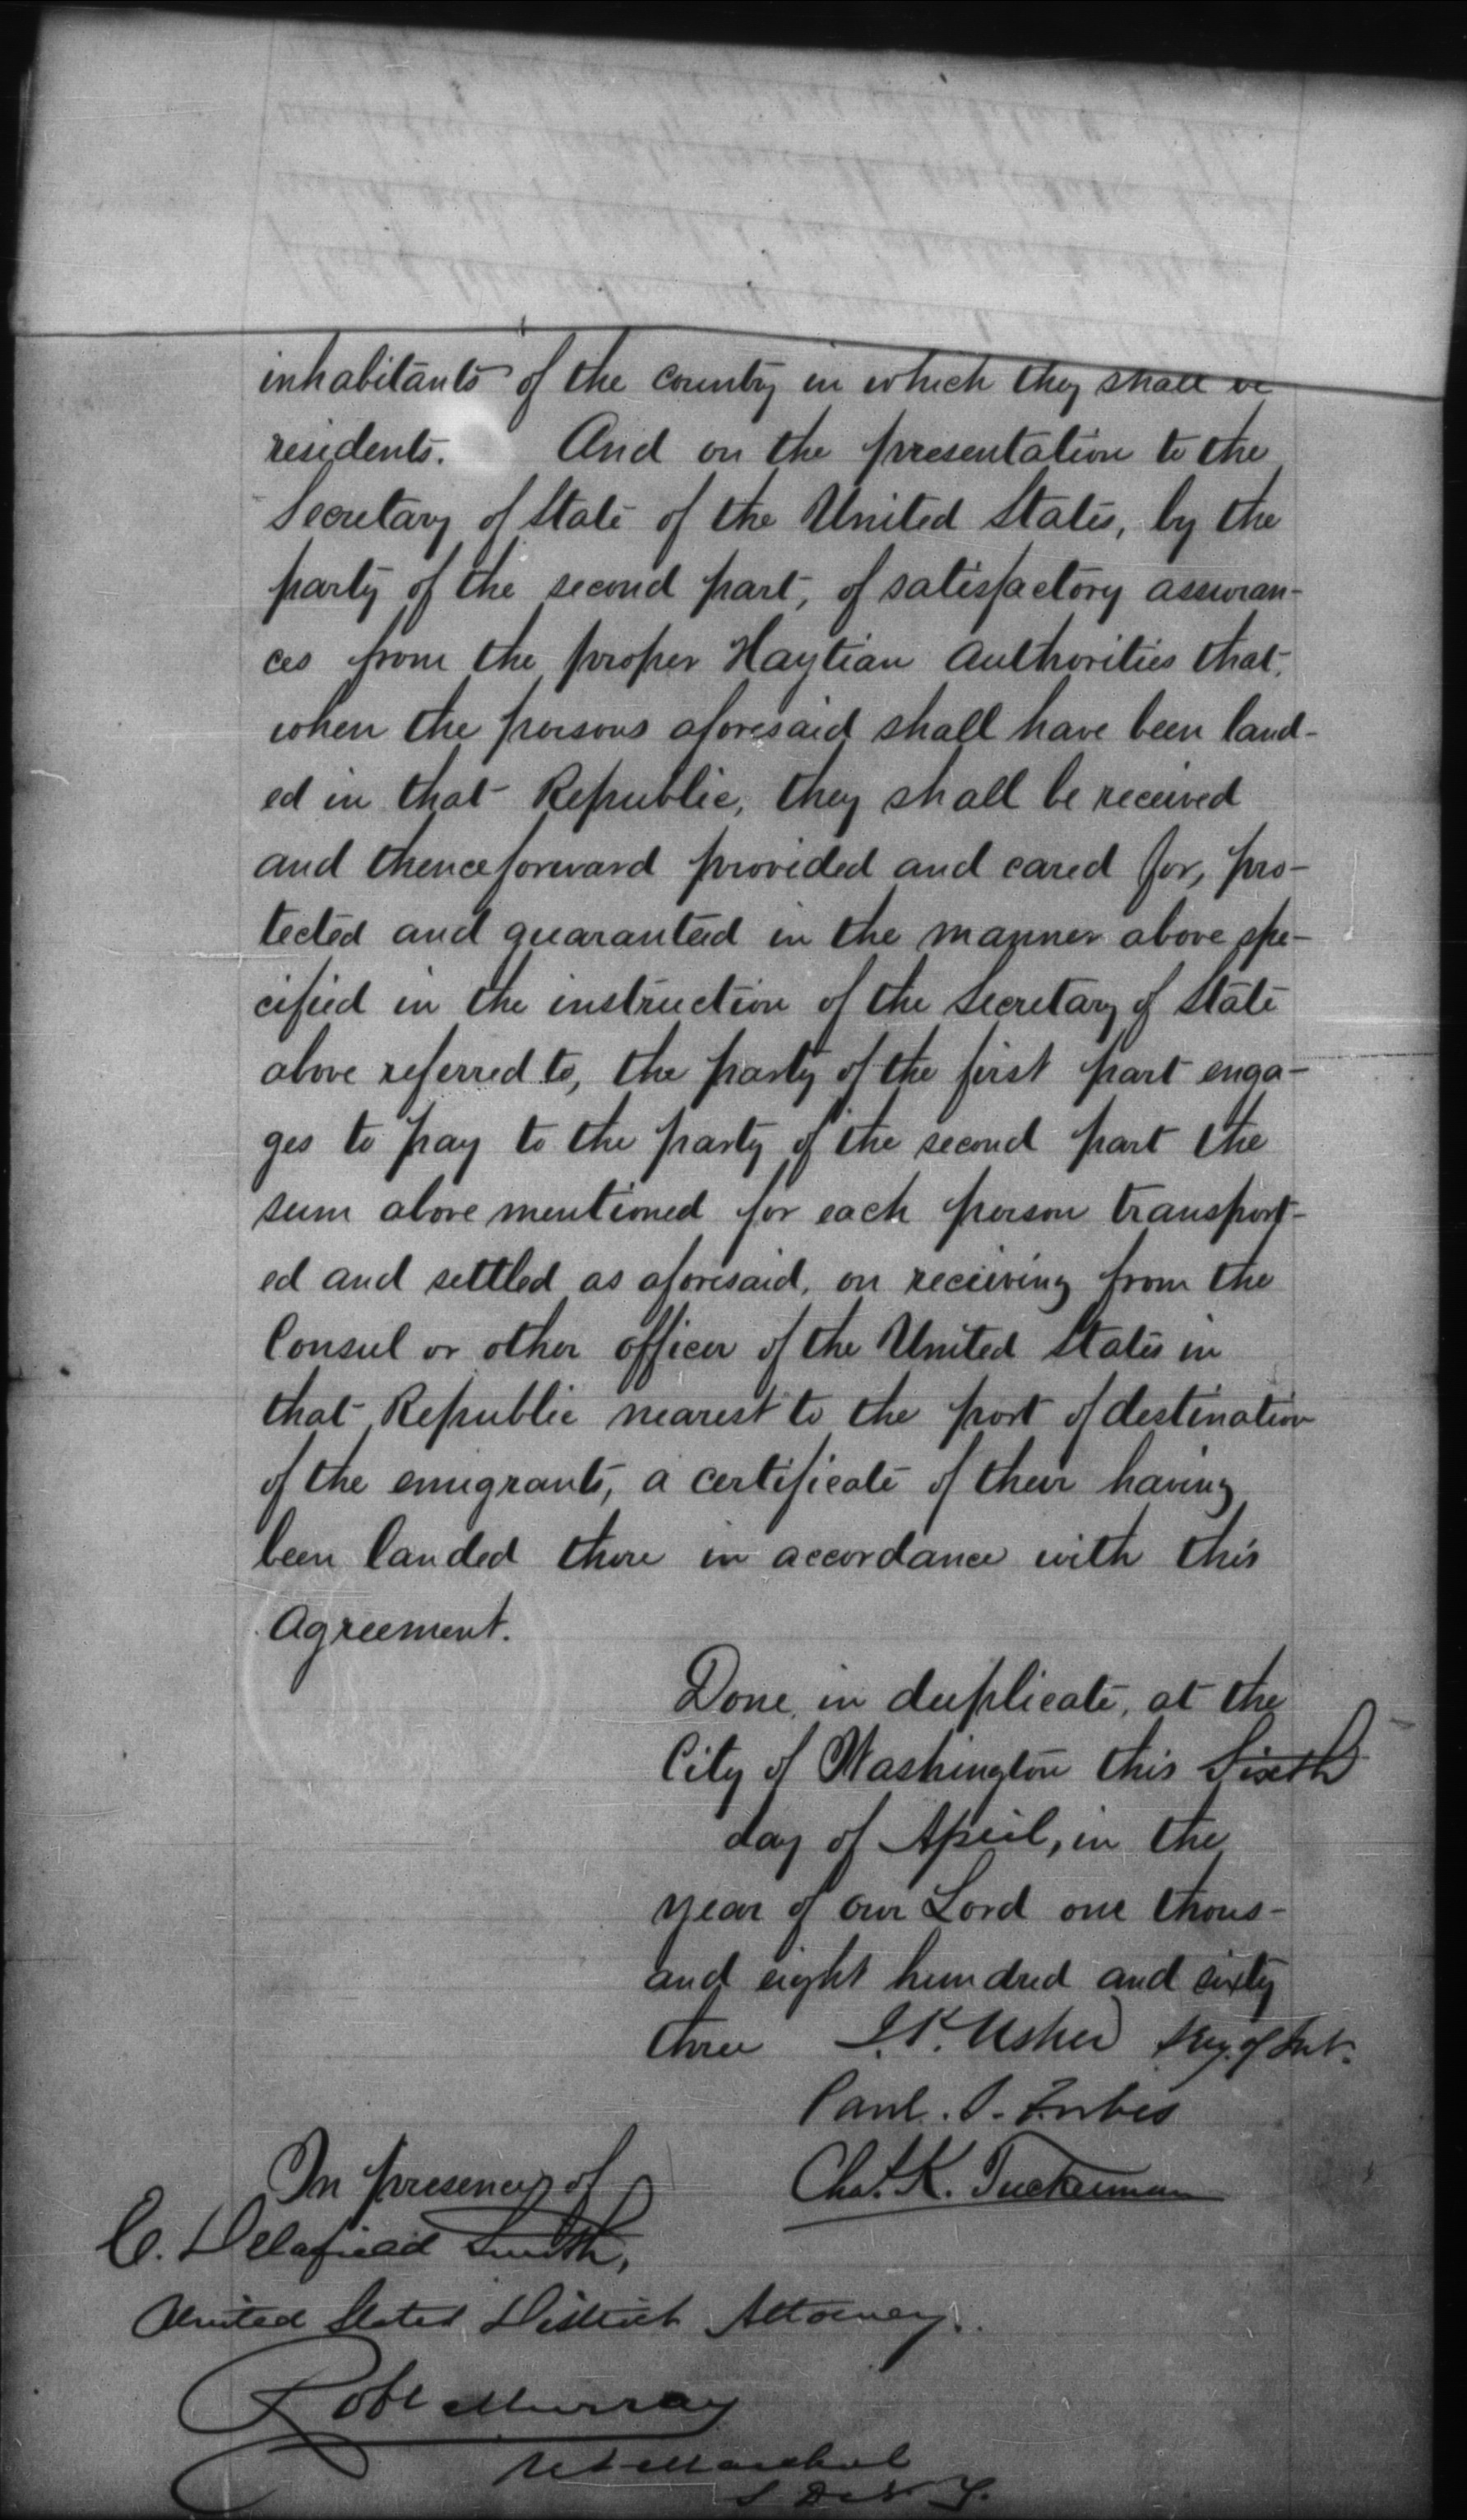 inhabitants of the country in which they shall be
residents. And on the presentation to the
Secretary of State of the United States, by the
party of the second part, of satisfactory assuran-
ces from the proper Haytian Authorities that,
when the persons aforesaid shall have been land-
ed in that Republic, they shall be received
and thenceforward provided and cared for, pro-
tected and guaranteed in the manner above spe-
cified in the instruction of the Secretary of State
above referred to, the party of the first part enga-
ges to pay to the party of the second part the
sum above mentioned for each person transport-
ed and settled as aforesaid, on receiving from the
Consul or other officer of the United States in
that Republic nearest to the port of destination
of the emigrants, a certificate of their having
been landed there in accordance with this
Agreement.
Done, in duplicate, at the
City of Washington this Sixth
day of April, in the
year of our Lord one thous-
and eight hundred and sixty
three J. P. Usher Secy. of Int.
Paul. S. Forbes
Chas. K. Tuckerman
In presence of
E. Delafield Smith,
United States District Attorney.
Robt Murray
U S Marshal
S D N Y.